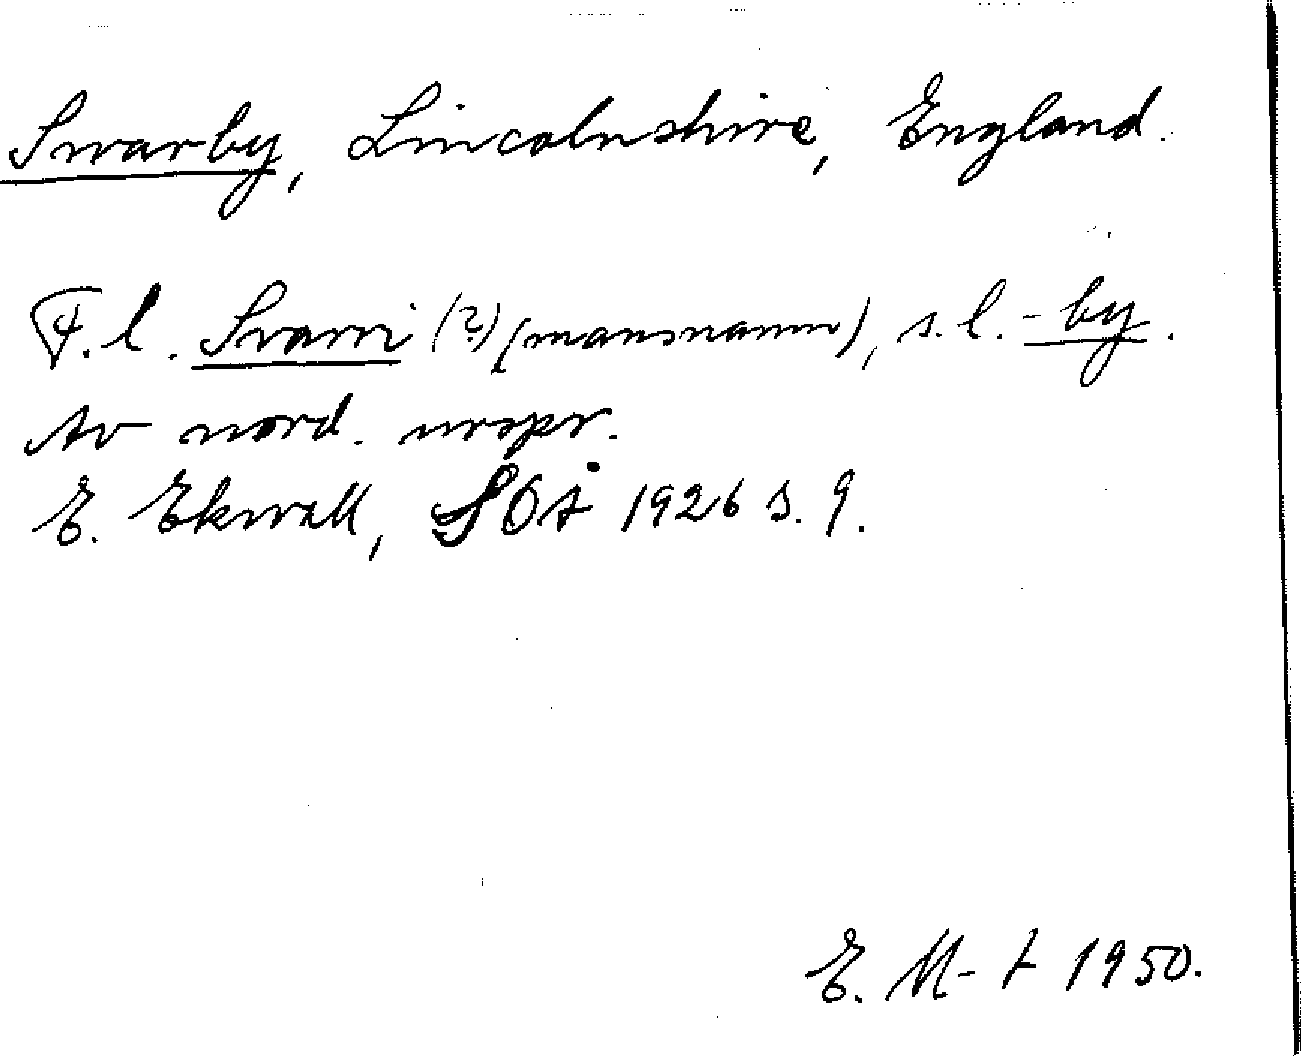 Swarby, Lincolnshire, England.
F.l. Svarri (?) (mansnamn), s.l. -by.
Av nord. urspr.
E. Ekwall, SOÅ 1926 s. 9.
E. M-t 1950.